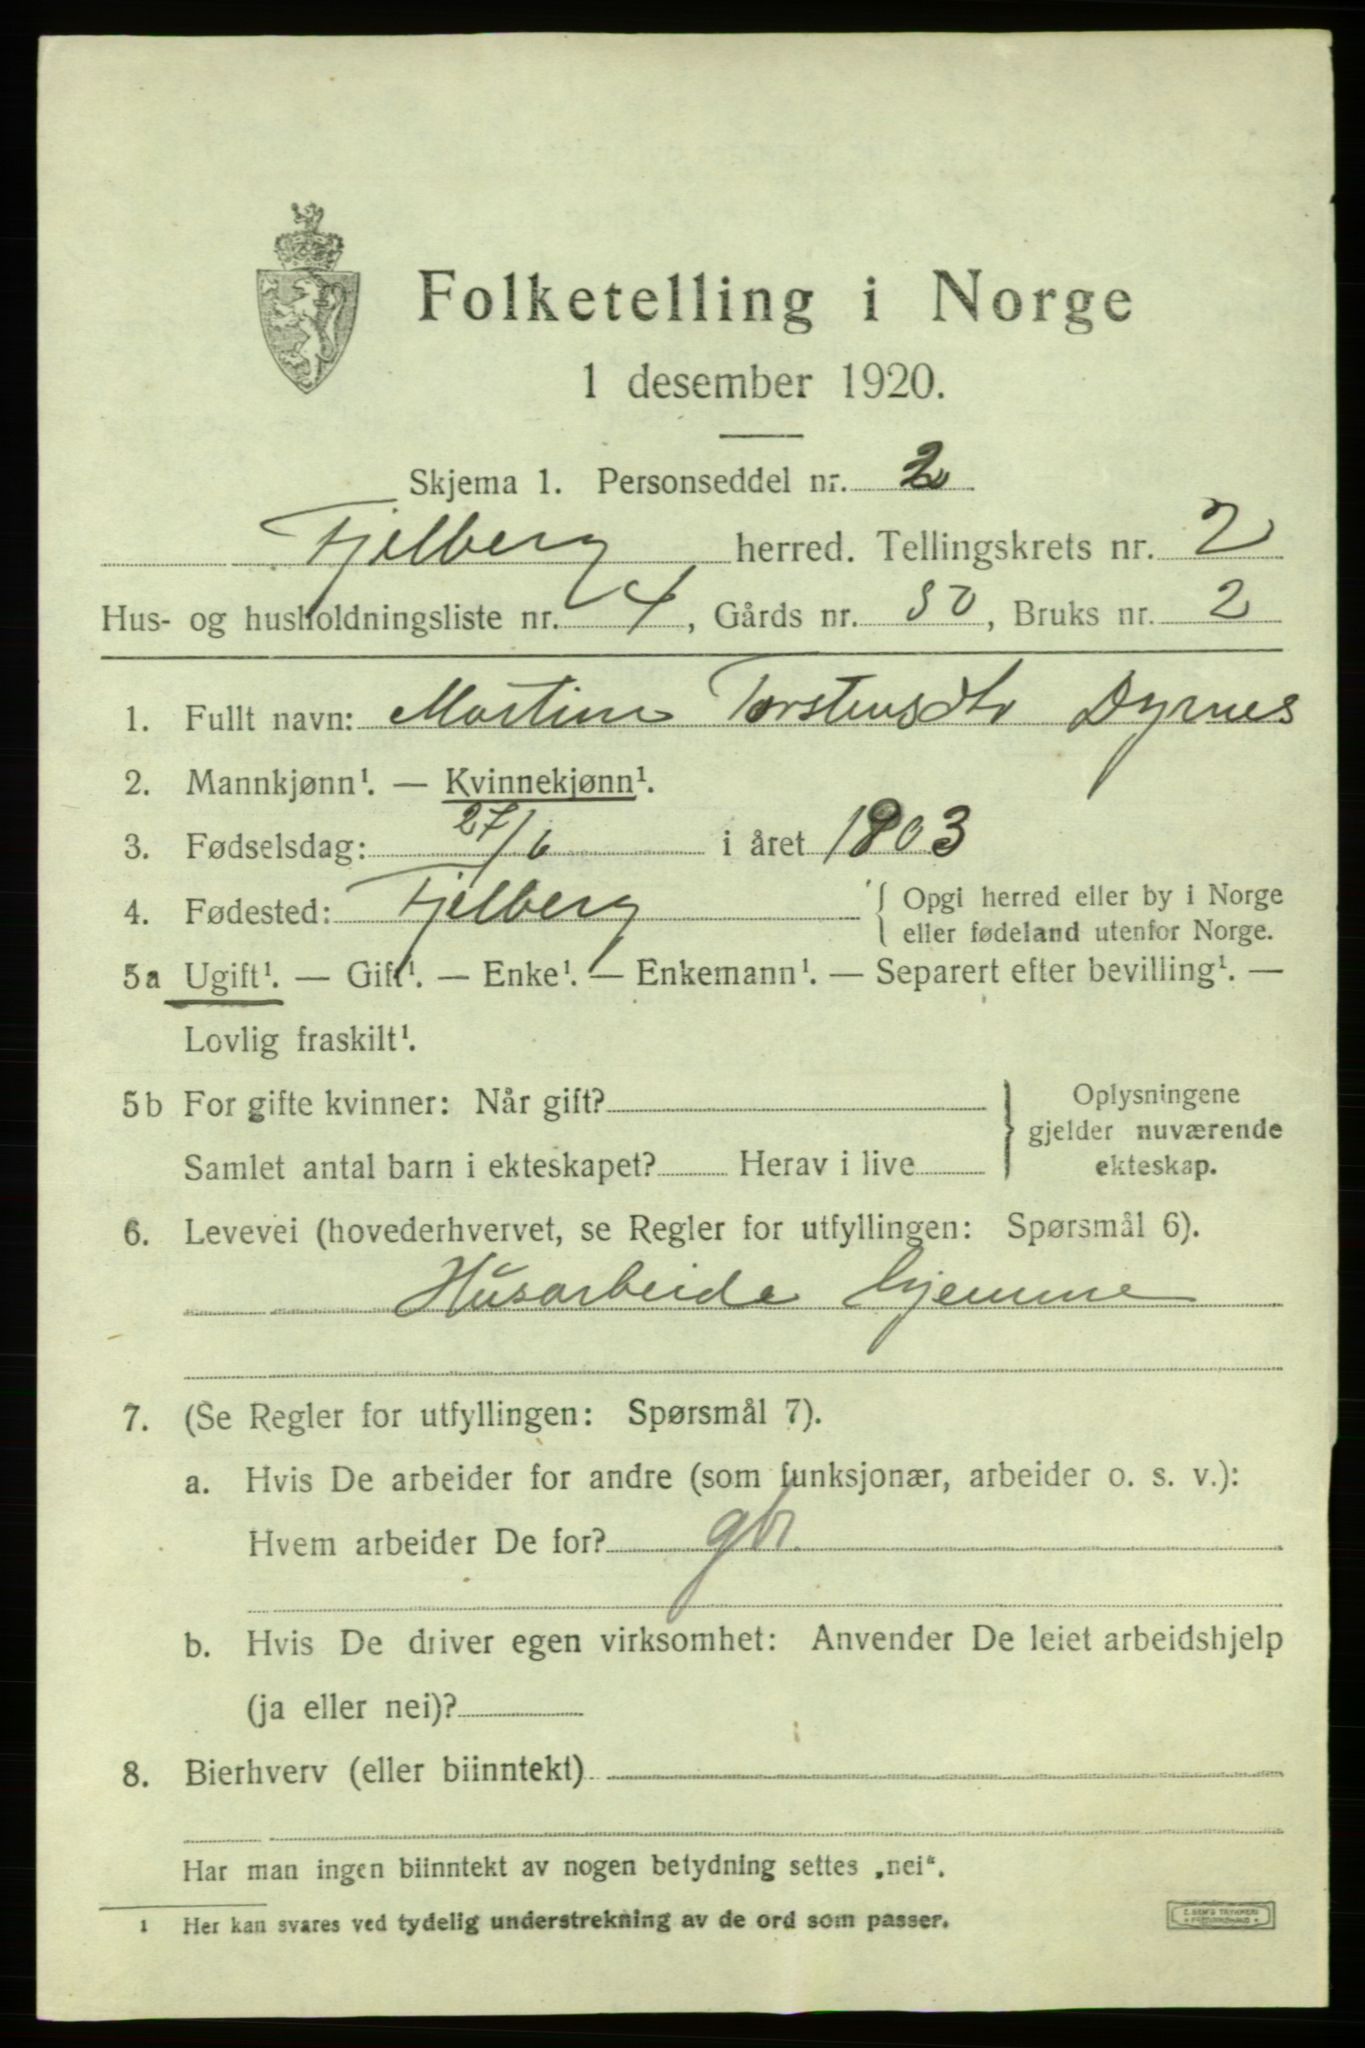 Folketelling i Norge
1 desember 1920.
Skjema 1. Personseddel nr. 2
Fjelberg herred. Tellingskrets nr. 2
Hus- og husholdningsliste nr. 4, Gårds nr. 50, Bruks nr. 2
1. Fullt navn: Martine Torstensdtr Dyrnes
2. Mannkjønn¹. — Kvinnekjønn¹.
3. Fødselsdag: 27/6 i året 1903
4. Fødested: Fjelberg { Opgi herred eller by i Norge
eller fødeland utenfor Norge.
5a Ugift¹. — Gift¹. — Enke¹. — Enkemann¹. — Separert efter bevilling¹. —
Lovlig fraskilt¹.
5b For gifte kvinner: Når gift?
Samlet antal barn i ekteskapet? Herav i live
} Oplysningene
gjelder nuværende
ekteskap.
6. Levevei (hovederhvervet, se Regler for utfyllingen: Spørsmål 6).
Husarbeide hjemme
7. (Se Regler for utfyllingen: Spørsmål 7).
a. Hvis De arbeider for andre (som funksjonær, arbeider o. s. v.):
Hvem arbeider De for? gbr.
b. Hvis De driver egen virksomhet: Anvender De leiet arbeidshjelp
(ja eller nei)?
8. Bierhverv (eller biinntekt)
Har man ingen biinntekt av nogen betydning settes „nei“.
¹ Her kan svares ved tydelig understrekning av de ord som passer.